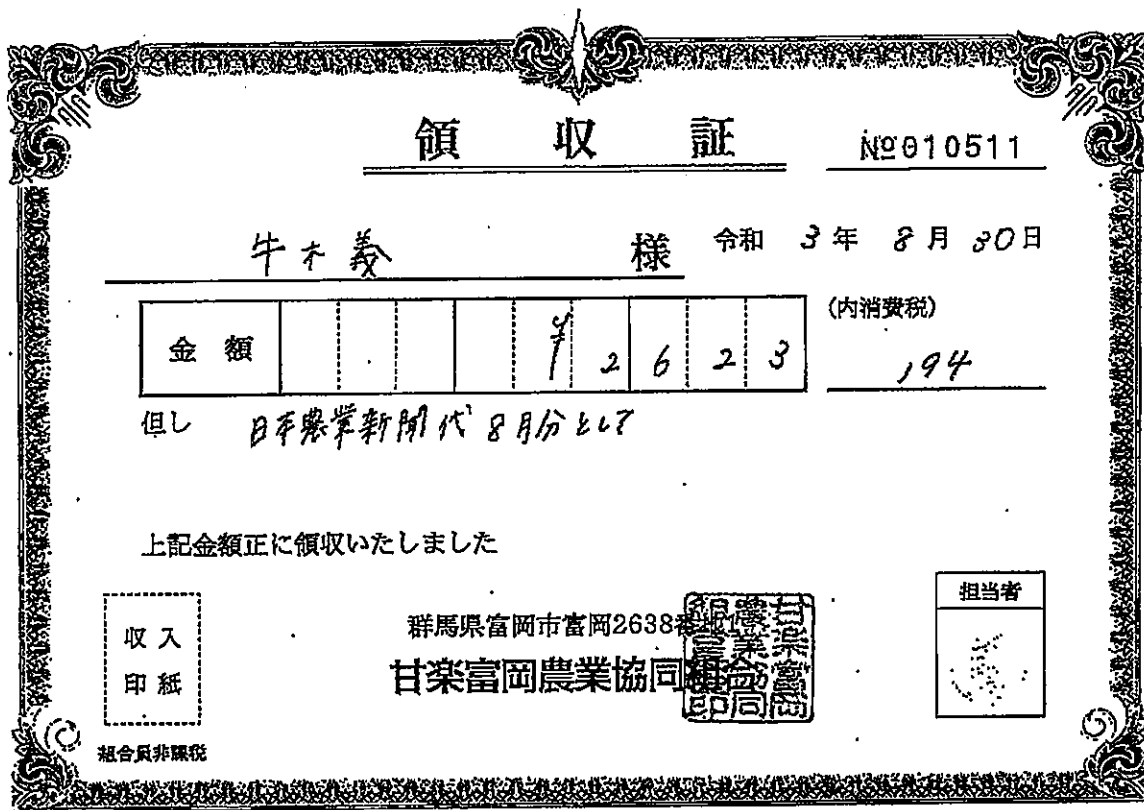 領収証
№010511
牛木義 様
令和 3年 8月 30日
金額 ¥2623
(内消費税)
194
但し 日本農業新聞代 8月分として
上記金額正に領収いたしました
収入
印紙
組合員非課税
群馬県富岡市富岡2638番地1
甘楽富岡農業協同組合
甘楽富岡
農業協同
組合之印
担当者